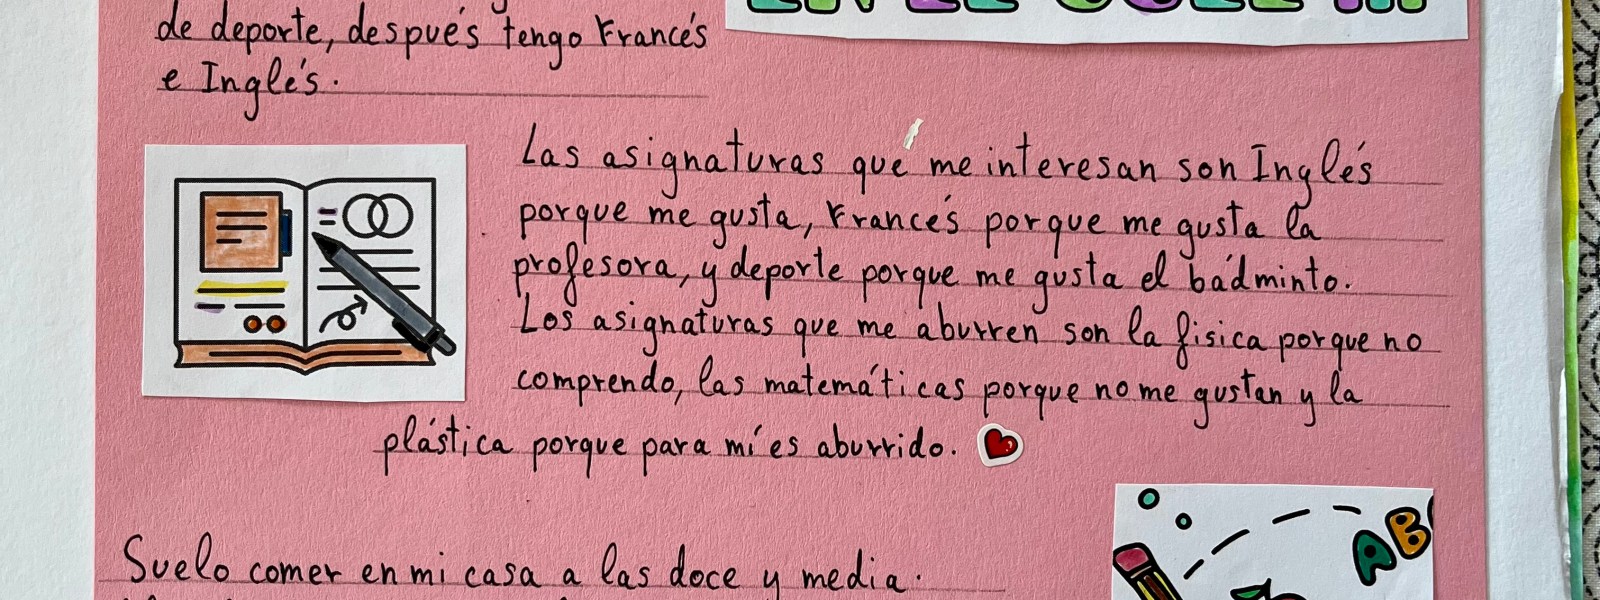 de deporte, después tengo Francés
e Inglés.
Las asignaturas qué me interesan son Inglés
porque me gusta, Francés porque me gusta la
profesora, y deporte porque me gusta el bádminto.
Los asignaturas que me aburren son la fisica porque no
comprendo, las matemáticas porque no me gustan y la
plástica porque para mí es aburrido.
AB
Suelo comer en mi casa a las doce y media.